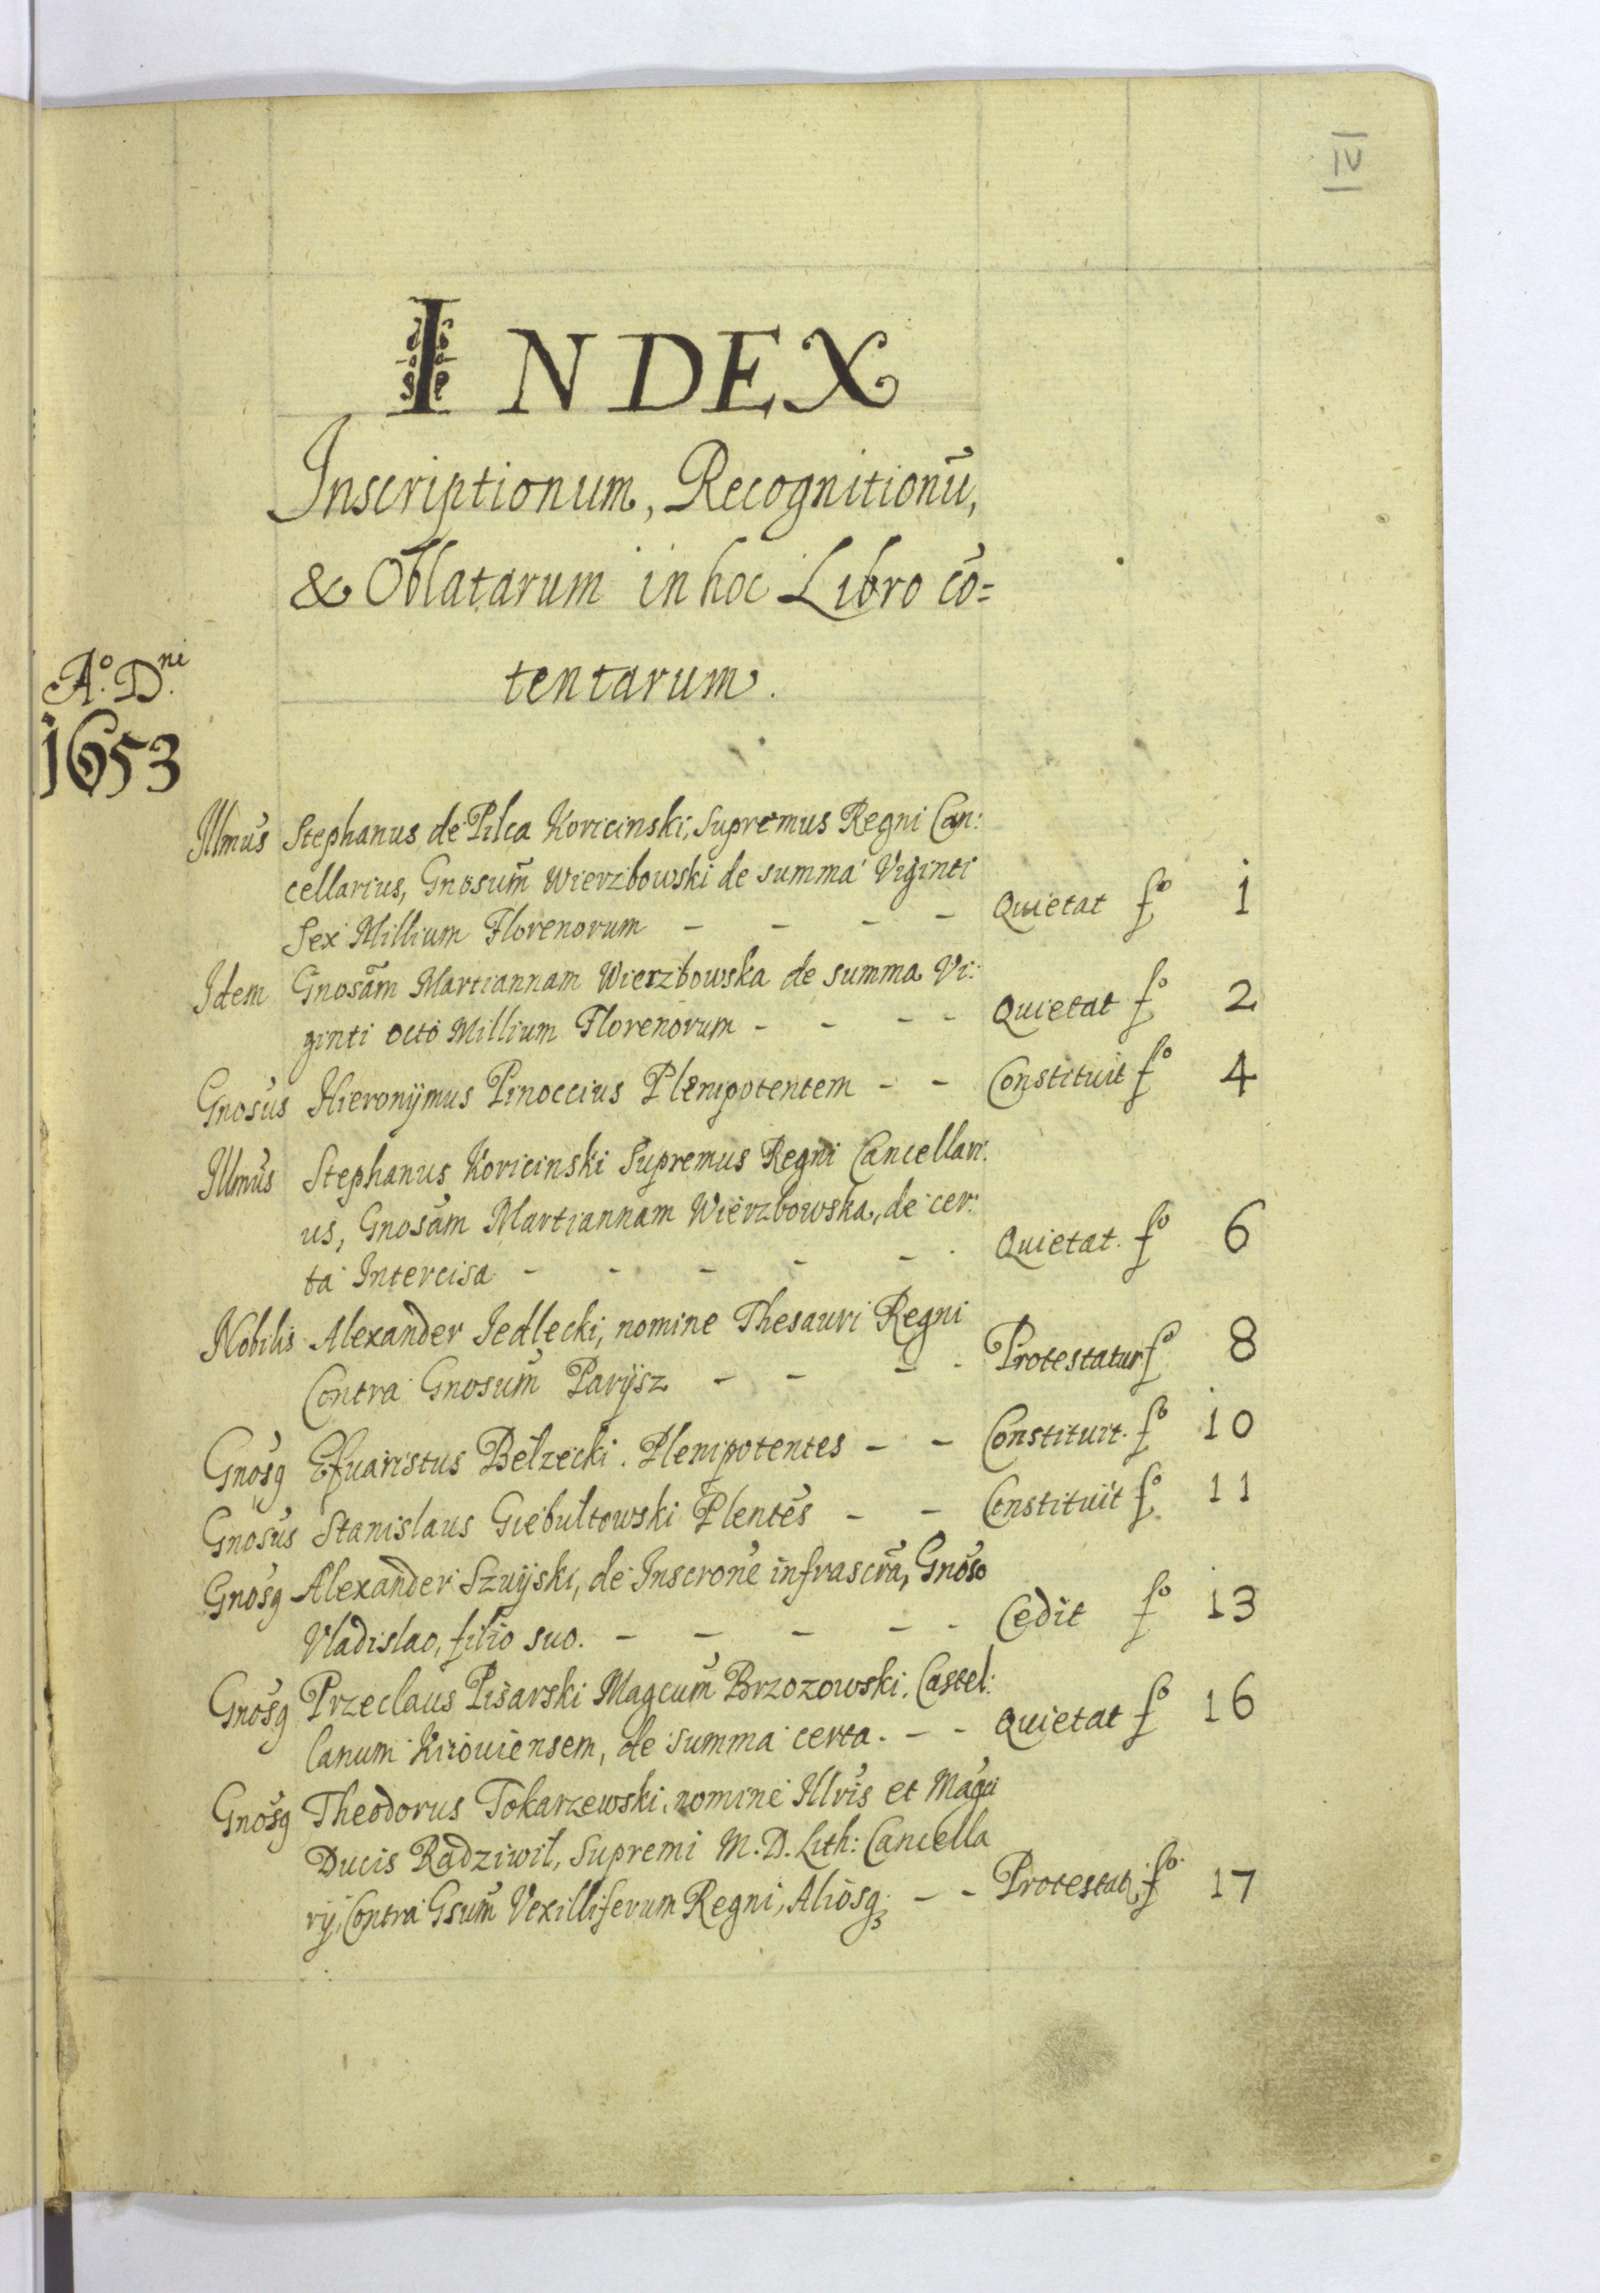 IV
INDEX
Inscriptionum, Recognitionũ,
& Oblatarum in hoc Libro cõ=
tentarum.
Aº. Dni.
1653
Illmus Stephanus de Pilca Koricinski, Supremus Regni Can:
cellarius, Gnosum Wierzbowski de summa Viginti
Sex Millium Florenorum - - - - Quietat fº 1
Idem Gnosam Martiannam Wierzbowska de summa Vi:
ginti octo Millium Florenorum - - - - Quietat fº 2
Gnosus Hieronÿmus Pinoccius Plenipotentem - - Constituit fº 4
Illmus Stephanus Koricinski Supremus Regni Cancellari:
us, Gnosam Martiannam Wierzbowska, de cer:
ta Intercisa - - - - - - Quietat. fº 6
Nobilis Alexander Jedlecki, nomine Thesauri Regni
Contra Gnosum Parÿsz - - - - Protestatur fº 8
Gnosq Efuaristus Belzecki. Plenipotentes - - Constituit. fº 10
Gnosus Stanislaus Giebultowski Plentes - - Constituit fº 11
Gnosq Alexander Szuÿski, de Inscrone infrascra, Gnoso
Vladislao, filio suo. - - - - - Cedit fº 13
Gnosq Przeclaus Pisarski Magcum Brzozowski. Castel:
lanum Kiiouiensem, de summa certa. - - Quietat fº 16
Gnosq Theodorus Tokarzewski, nomine Illris et Magci
Ducis Radziwil, Supremi M. D. Lith: Cancella
rÿ, Contra Gsum Vexilliferum Regni, Aliosq; - - Protestat, fº 17